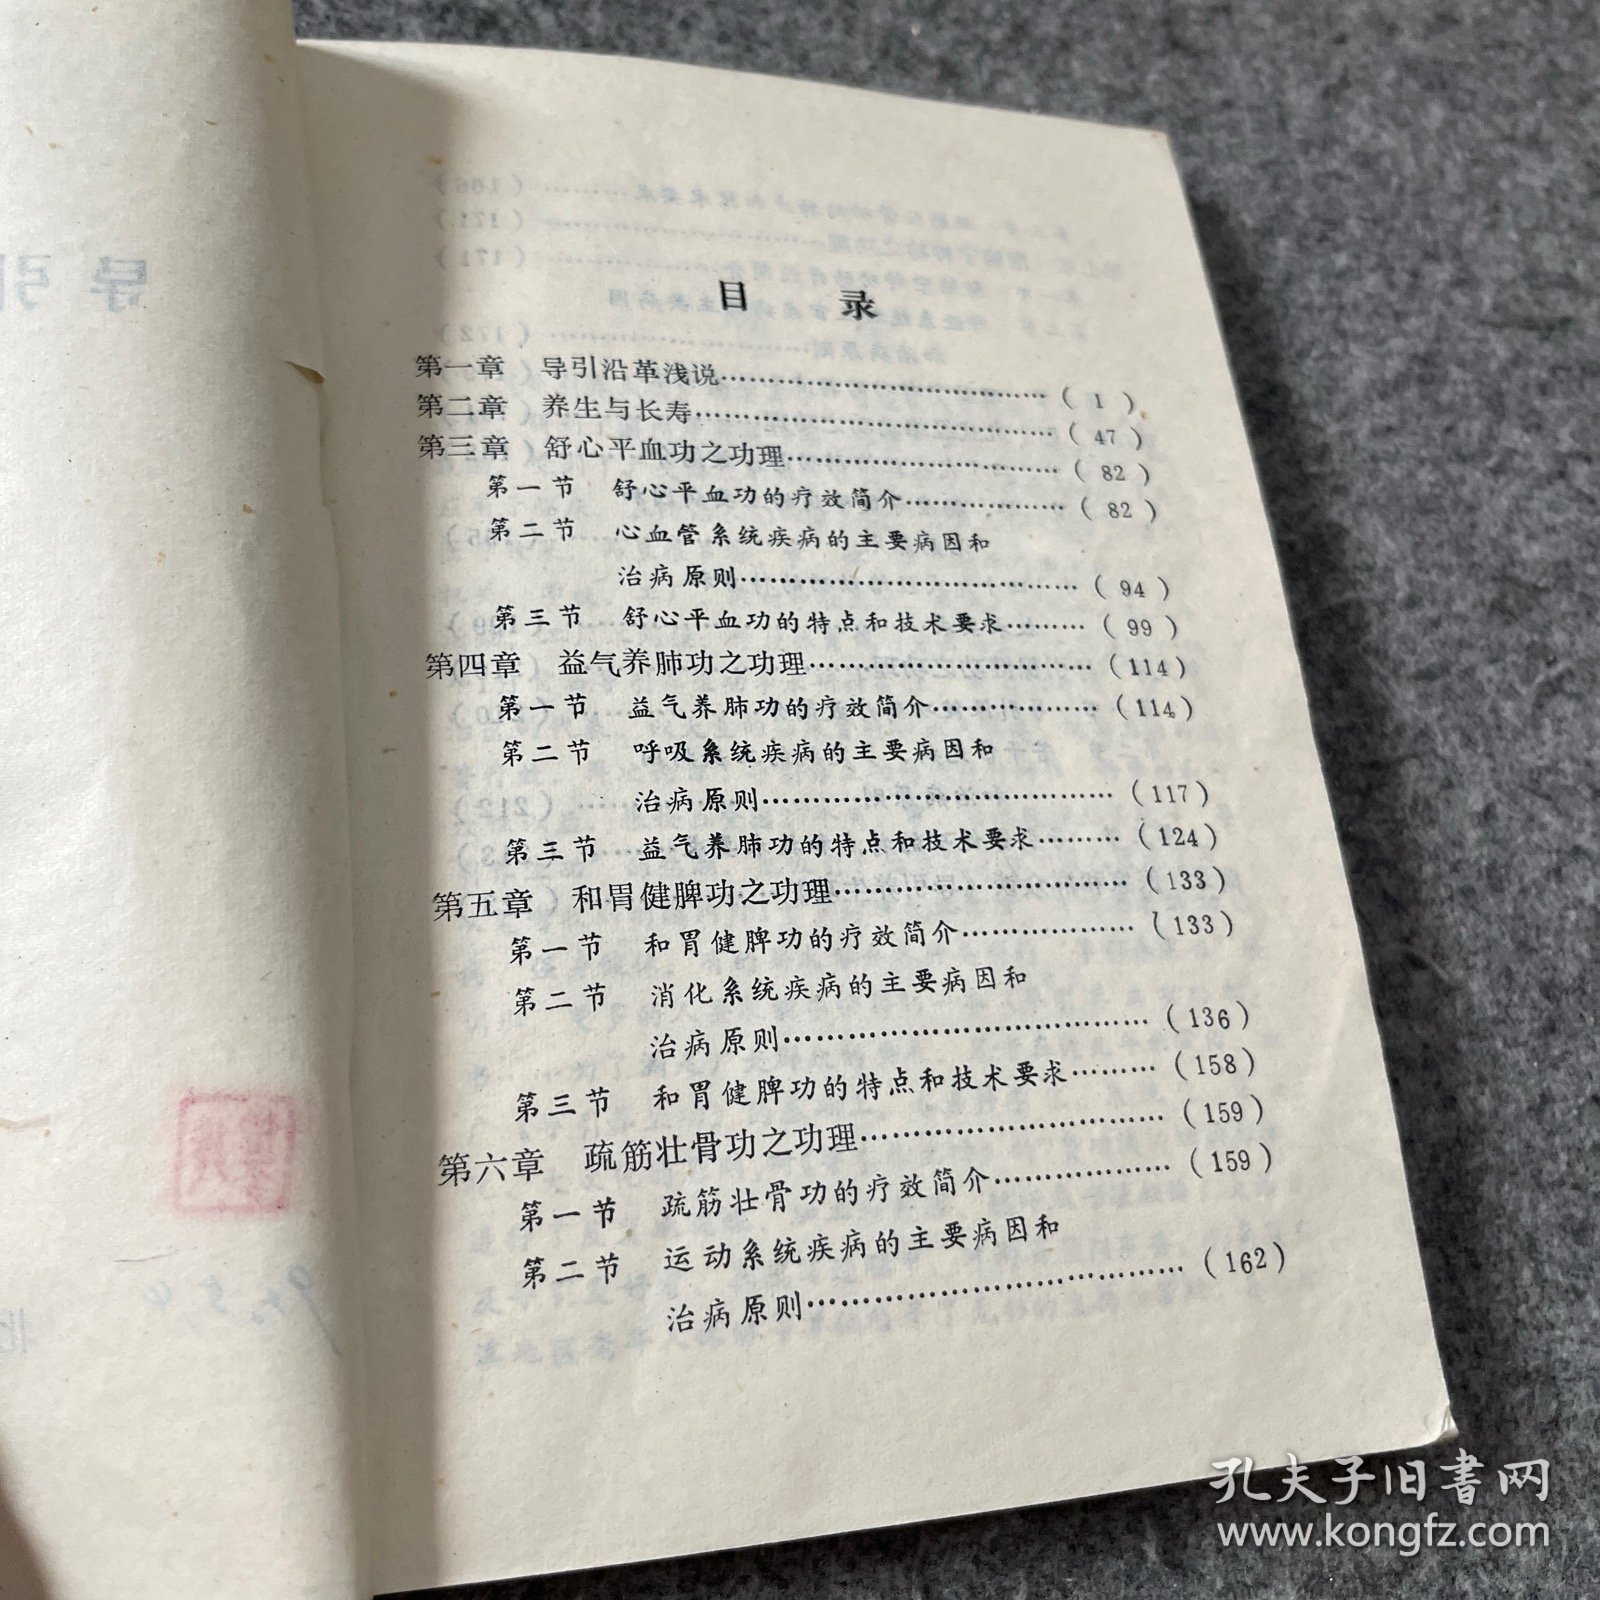 目 录
第一章 导引沿革浅说………………………………( 1 )
第二章 养生与长寿…………………………………( 47 )
第三章 舒心平血功之功理…………………………( 82 )
第一节 舒心平血功的疗效简介………………( 82 )
第二节 心血管系统疾病的主要病因和
治病原则………………………………( 94 )
第三节 舒心平血功的特点和技术要求………( 99 )
第四章 益气养肺功之功理…………………………(114)
第一节 益气养肺功的疗效简介………………(114)
第二节 呼吸系统疾病的主要病因和
治病原则………………………………(117)
第三节 益气养肺功的特点和技术要求………(124)
第五章 和胃健脾功之功理…………………………(133)
第一节 和胃健脾功的疗效简介………………(133)
第二节 消化系统疾病的主要病因和
治病原则………………………………(136)
第三节 和胃健脾功的特点和技术要求………(158)
第六章 疏筋壮骨功之功理…………………………(159)
第一节 疏筋壮骨功的疗效简介………………(159)
第二节 运动系统疾病的主要病因和
治病原则………………………………(162)
孔夫子旧书网
www.kongfz.com